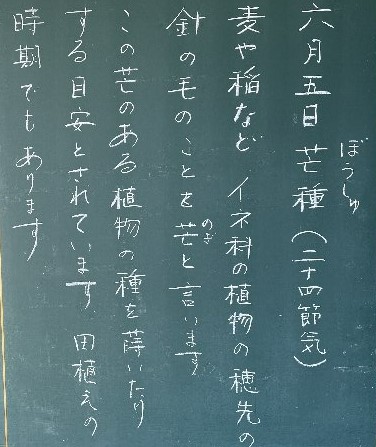 六月五日 芒種（二十四節気）
ぼうしゅ
麦や稲など イネ科の植物の穂先の
針の毛のことを芒と言います
のぎ
この芒のある植物の種を蒔いたり
する目安とされています 田植えの
時期でもあります